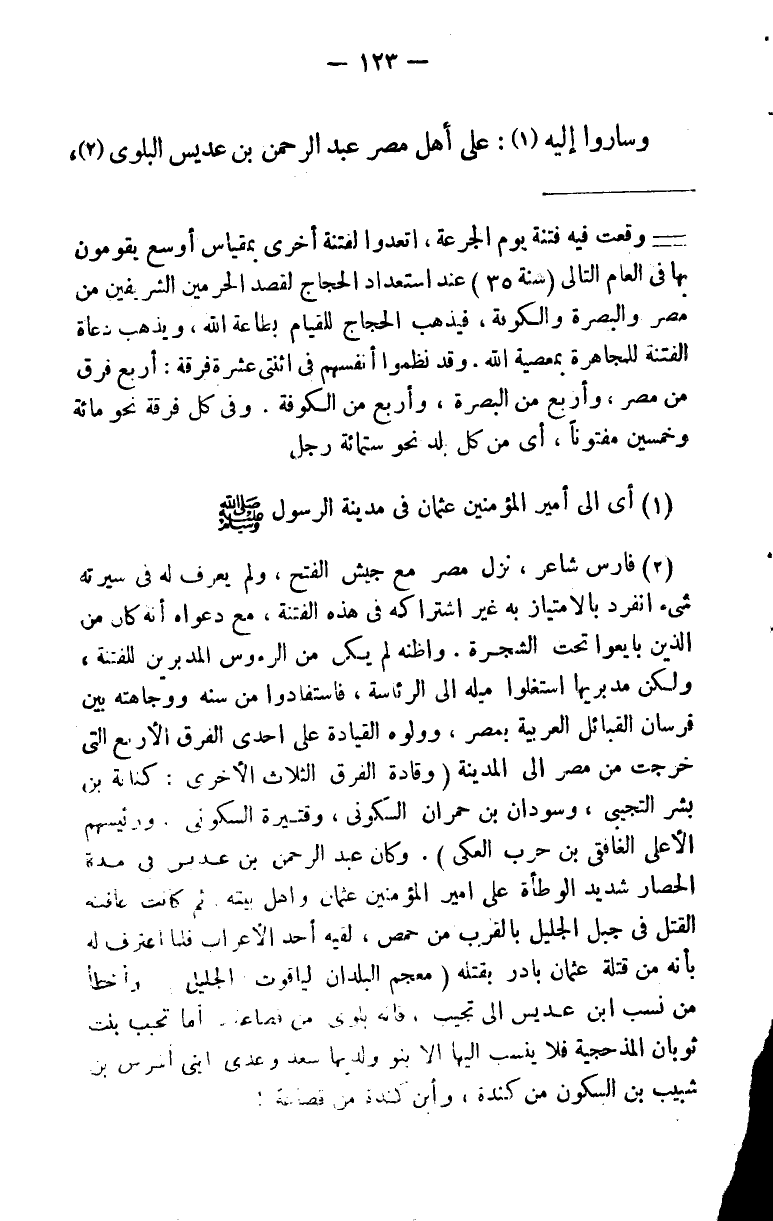 — ١٢٣ —
وساروا إليه (١) : على أهل مصر عبد الرحمن بن عديس البلوى (٢)،
== وقعت فيه فتنة يوم الجرعة ، اتعدوا لفتنة أخرى بمقياس أوسع يقومون
بها فى العام التالى (سنة ٣٥) عند استعداد الحجاج لقصد الحرمين الشريفين من
مصر والبصرة والكوفة ، فيذهب الحجاج للقيام بطاعة الله ، ويذهب دعاة
الفتنة للمجاهرة بمعصية الله . وقد نظموا أنفسهم فى اثنتى عشرة فرقة : أربع فرق
من مصر ، وأربع من البصرة ، وأربع من الكوفة . وفى كل فرقة نحو مائة
وخمسين مفتوناً ، أى من كل بلد نحو ستمائة رجل
(١) أى الى أمير المؤمنين عثمان فى مدينة الرسول ﷺ
(٢) فارس شاعر ، نزل مصر مع جيش الفتح ، ولم يعرف له فى سيرته
شىء انفرد بالامتياز به غير اشتراكه فى هذه الفتنة ، مع دعواه أنه كان من
الذين بايعوا تحت الشجرة . واظنه لم يكن من الرءوس المدبرين للفتنة ،
ولكن مدبريها استغلوا ميله الى الرئاسة ، فاستفادوا من سنه ووجاهته بين
فرسان القبائل العربية بمصر ، وولوه القيادة على احدى الفرق الأربع التى
خرجت من مصر الى المدينة ( وقادة الفرق الثلاث الأخرى : كنانة بن
بشر التجيبى ، وسودان بن حمران السكونى ، وقتيرة السكونى . ورئيسهم
الأعلى الغافقى بن حرب العكى ) . وكان عبد الرحمن بن عديس فى مدة
الحصار شديد الوطأة على امير المؤمنين عثمان واهل بيته . ثم كانت عاقبته
القتل فى جبل الجليل بالقرب من حمص ، لقيه أحد الأعراب فلما اعترف له
بأنه من قتلة عثمان بادر بقتله ( معجم البلدان لياقوت الجليل واخطأ
من نسب ابن عديس الى تجيب ، فانه بلوى من قضاعة . أما تجيب بنت
ثوبان المذحجية فلا ينسب اليها الا بنو ولديها سعد وعدى ابنى أشرس بن
شبيب بن السكون من كندة ، وأين كندة من قضاعة !